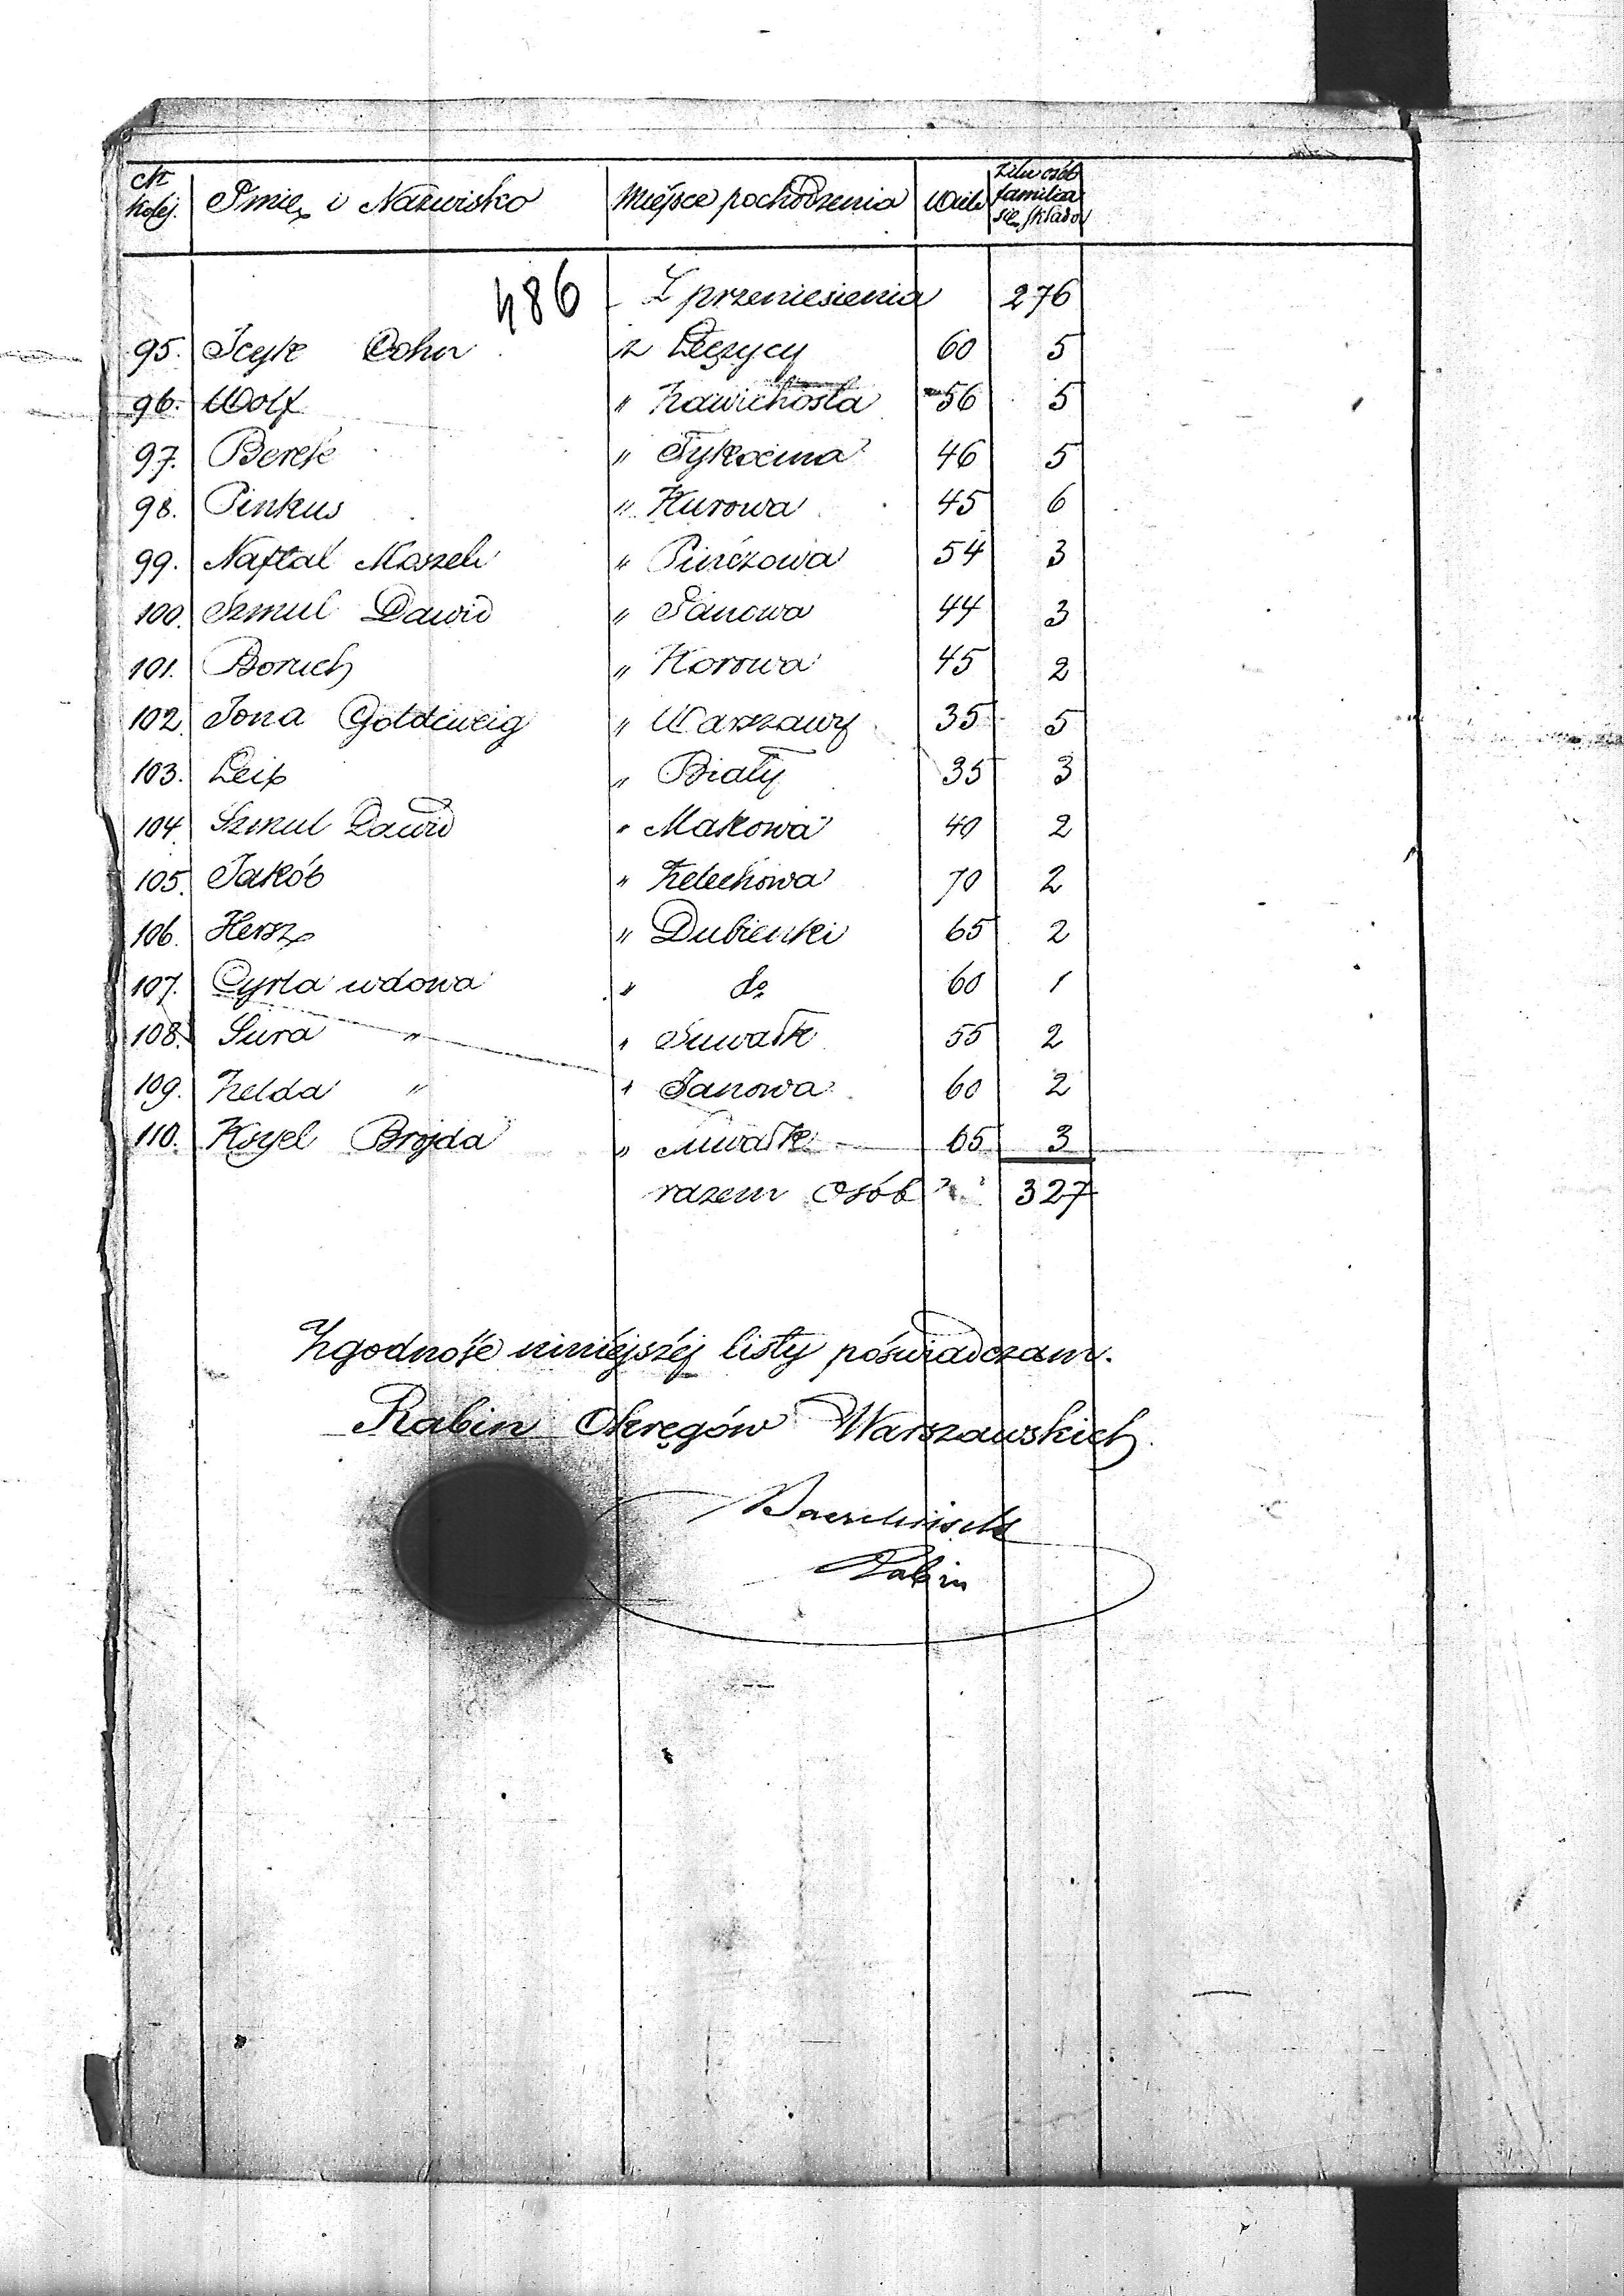 № Kolej. Imie i Nazwisko Miejsce pochodzenia Wiek Z ilu osób familia się składa
486 Z przeniesienia 276
95. Icyk Cohn z Łęczycy 60 5
96. Wolf " Zawichosta 56 5
97. Berek " Tykocina 46 5
98. Pinkus " Kurowa 45 6
99. Naftal Moszek " Pińczowa 54 3
100. Szmul Dawid " Janowa 44 3
101. Boruch " Korowa 45 2
102. Jona Goldcweig " Warszawy 35 5
103. Leib " Biały 35 3
104. Szmul Dawid " Makowa 40 2
105. Jakób " Żelechowa 70 2
106. Hersz " Dubienki 65 2
107. Cyrla wdowa " do 60 1
108. Sura " " Suwałk 55 2
109. Zelda " " Janowa 60 2
110. Koyel Brojda " Suwałk 65 3
razem Osób 327
Zgodność niniejszéj listy poświadczam.
Rabin Okręgów Warszawskich
Rabin